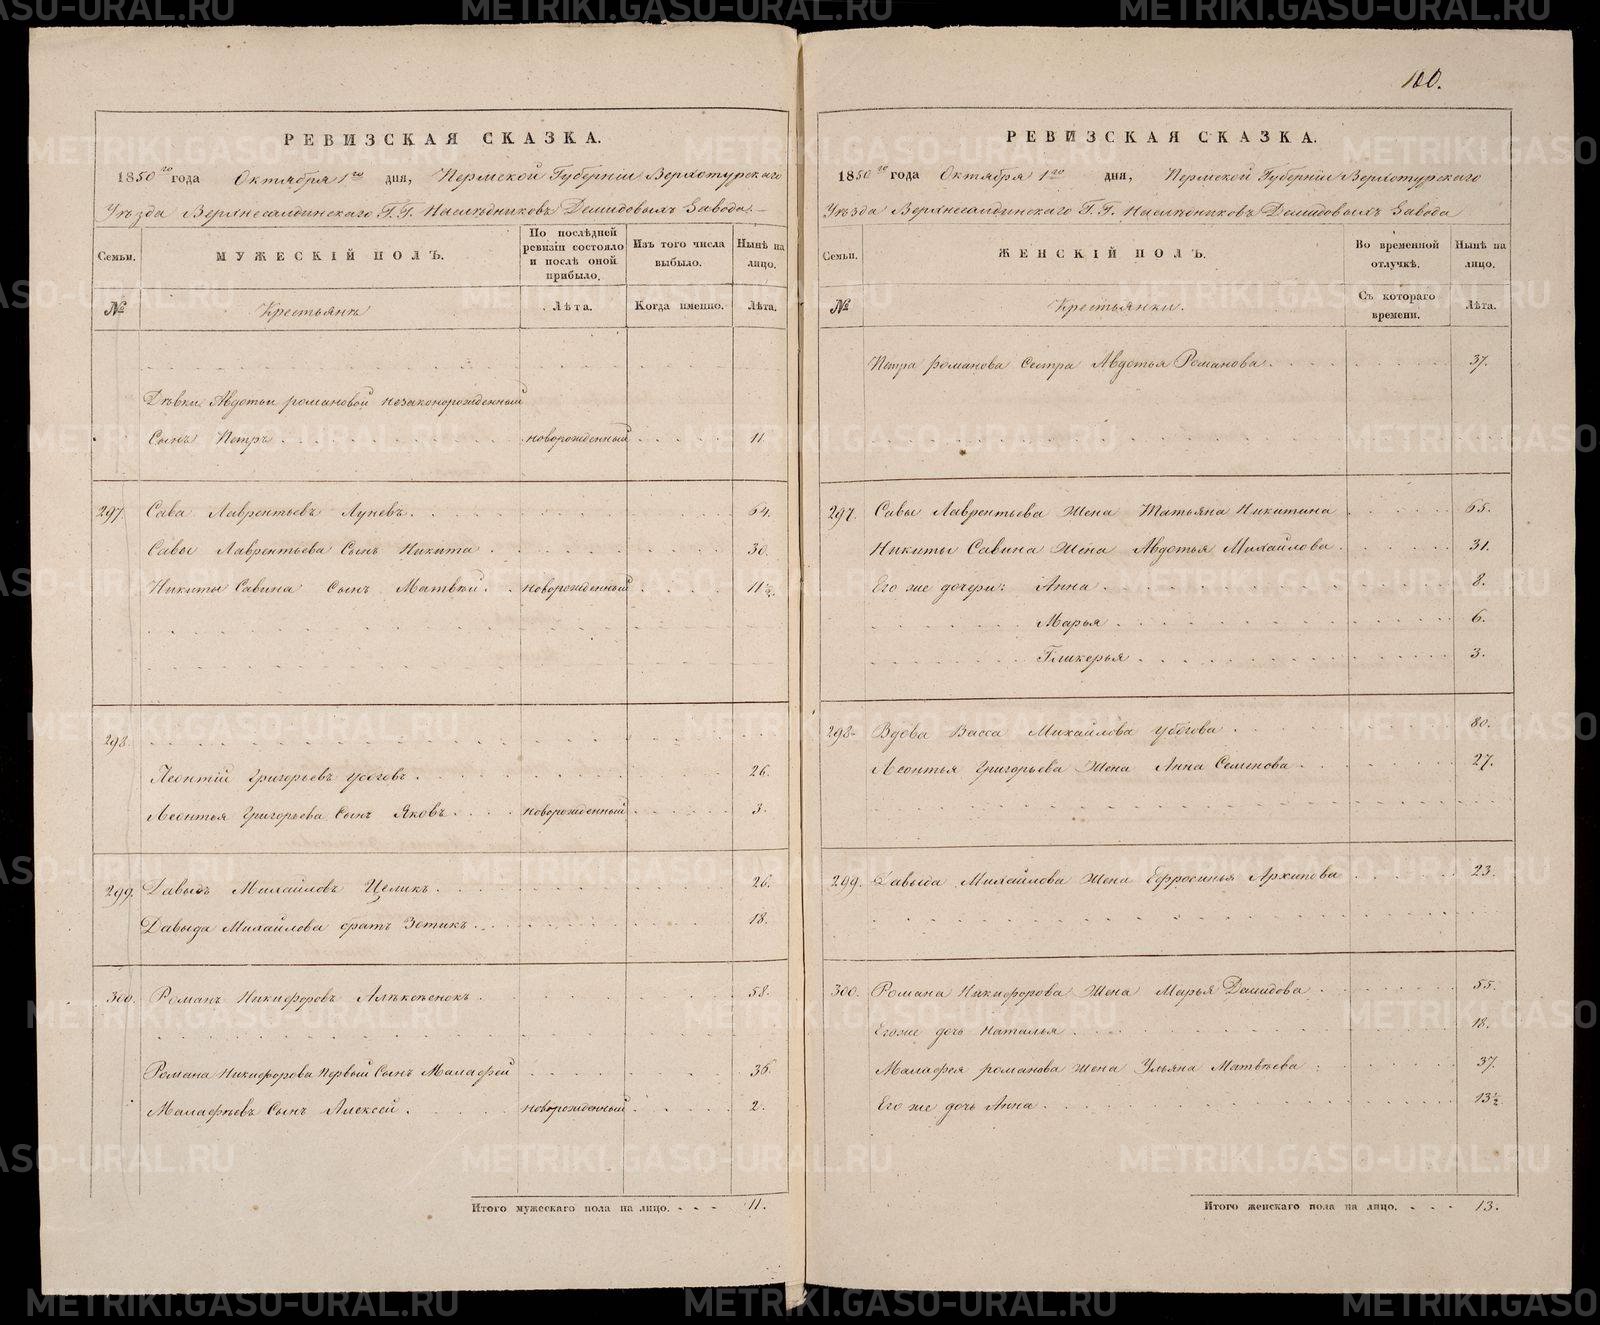 100.
РЕВИЗСКАЯ СКАЗКА.
1850го года Октября 1го дня, Пермской Губерніи Верхотурскаго
Уѣзда Верхнесалдинскаго Г.Г. Наслѣдниковъ Демидовыхъ Завода.
Семьи. МУЖЕСКІЙ ПОЛЪ. По послѣдней ревизіи состояло и послѣ оной прибыло. Изъ того числа выбыло. Нынѣ на лицо.
№ Крестьянъ Лѣта. Когда именно. Лѣта.
Дѣвки Авдотьи романовой незаконорожденный
Сынъ Петръ новорожденный 11.
297. Сава Лаврентьевъ Луневъ. 64.
Савы Лаврентьева Сынъ Никита 30.
Никиты Савина Сынъ Матвѣй. новорожденный 11½.
298.
Леонтій Григорьевъ Убоговъ. 26.
Леонтья Григорьева Сынъ Яковъ. новорожденный 3.
299. Давыдъ Михайловъ Целикъ. 26.
Давыда Михайлова братъ Зотикъ. 18.
300. Романъ Никифоровъ 58.
Романа Никифорова Первый Сынъ Малафей 36.
Малафѣевъ Сынъ Алексей. новорожденный 2.
Итого мужескаго пола на лицо. 11.
РЕВИЗСКАЯ СКАЗКА.
1850го года Октября 1го дня, Пермской Губерніи Верхотурскаго
Уѣзда Верхнесалдинскаго Г.Г. Наслѣдниковъ Демидовыхъ Завода
Семьи. ЖЕНСКІЙ ПОЛЪ. Во временной отлучкѣ. Нынѣ на лицо.
№ Крестьянки. Съ котораго времени. Лѣта.
Петра романова Сестра Авдотья Романова. 37.
297. Савы Лаврентьева Жена Татьяна Никитина 65.
Никиты Савина Жена Авдотья Михайлова. 31.
Его же дочери: Анна. 8.
Марья. 6.
Гликерья. 3.
298. Вдова Васса Михайлова Убогова. 80.
Леонтья Григорьева Жена Анна Семенова. 27.
299. Давыда Михайлова Жена Ефросинья Архипова 23.
300. Романа Никифорова Жена Марья Давидова. 55.
Его же дочь Наталья. 18.
Малафея романова жена Ульяна Матвѣева. 37.
Его же дочь Анна. 13½.
Итого женскаго пола на лицо. 13.
METRIKI.GASO-URAL.RU